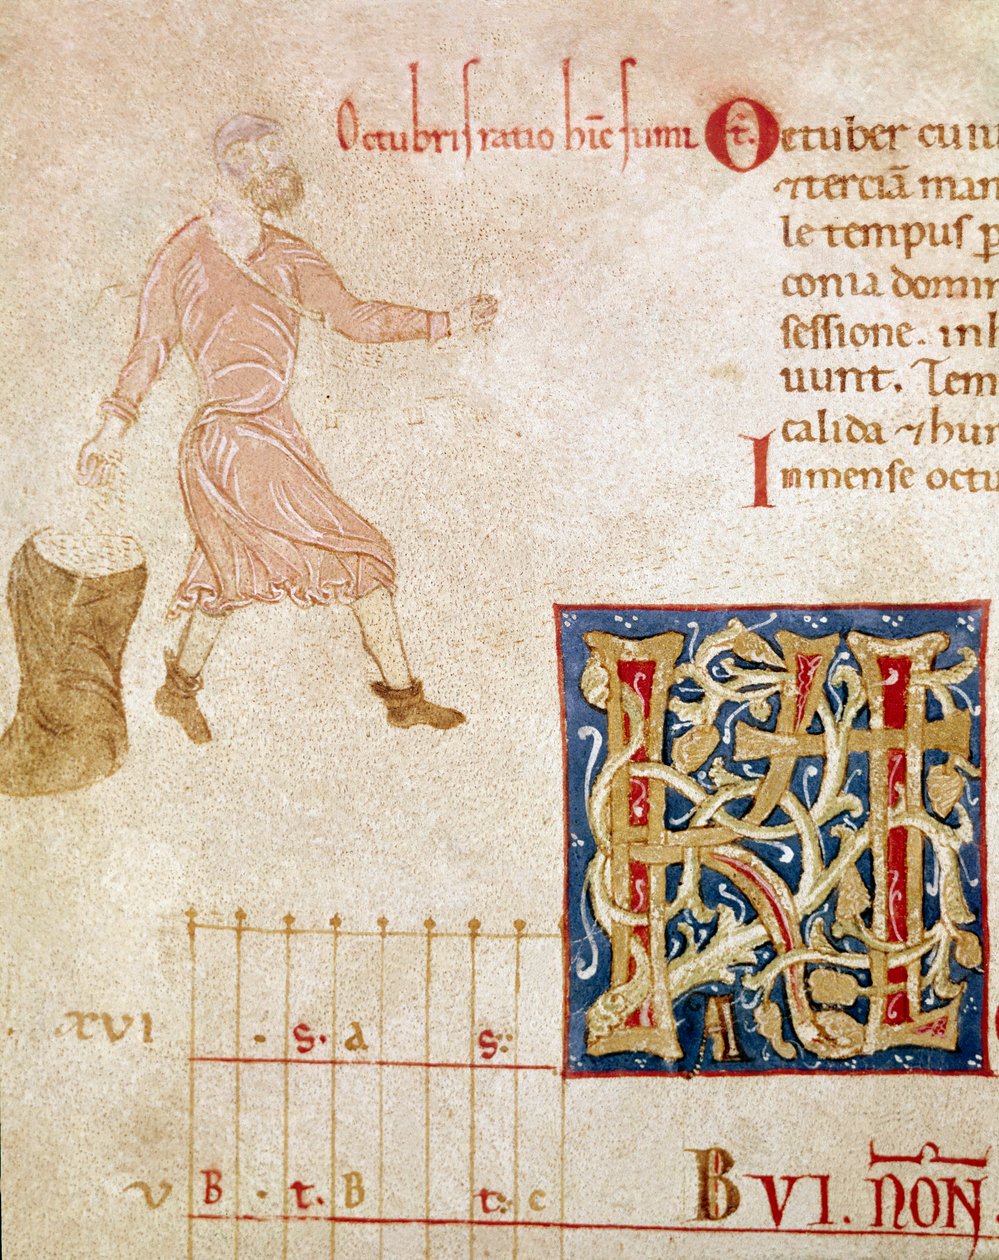 Octubris ratio hic sumi
October cum
terciā man
le tempus p
conia domin
sessione. inh
uunt. Tem
calida ⁊ hum
Inmense octu
KL
xvi · s. a s:
v B · t. B t: c B VI. NON.